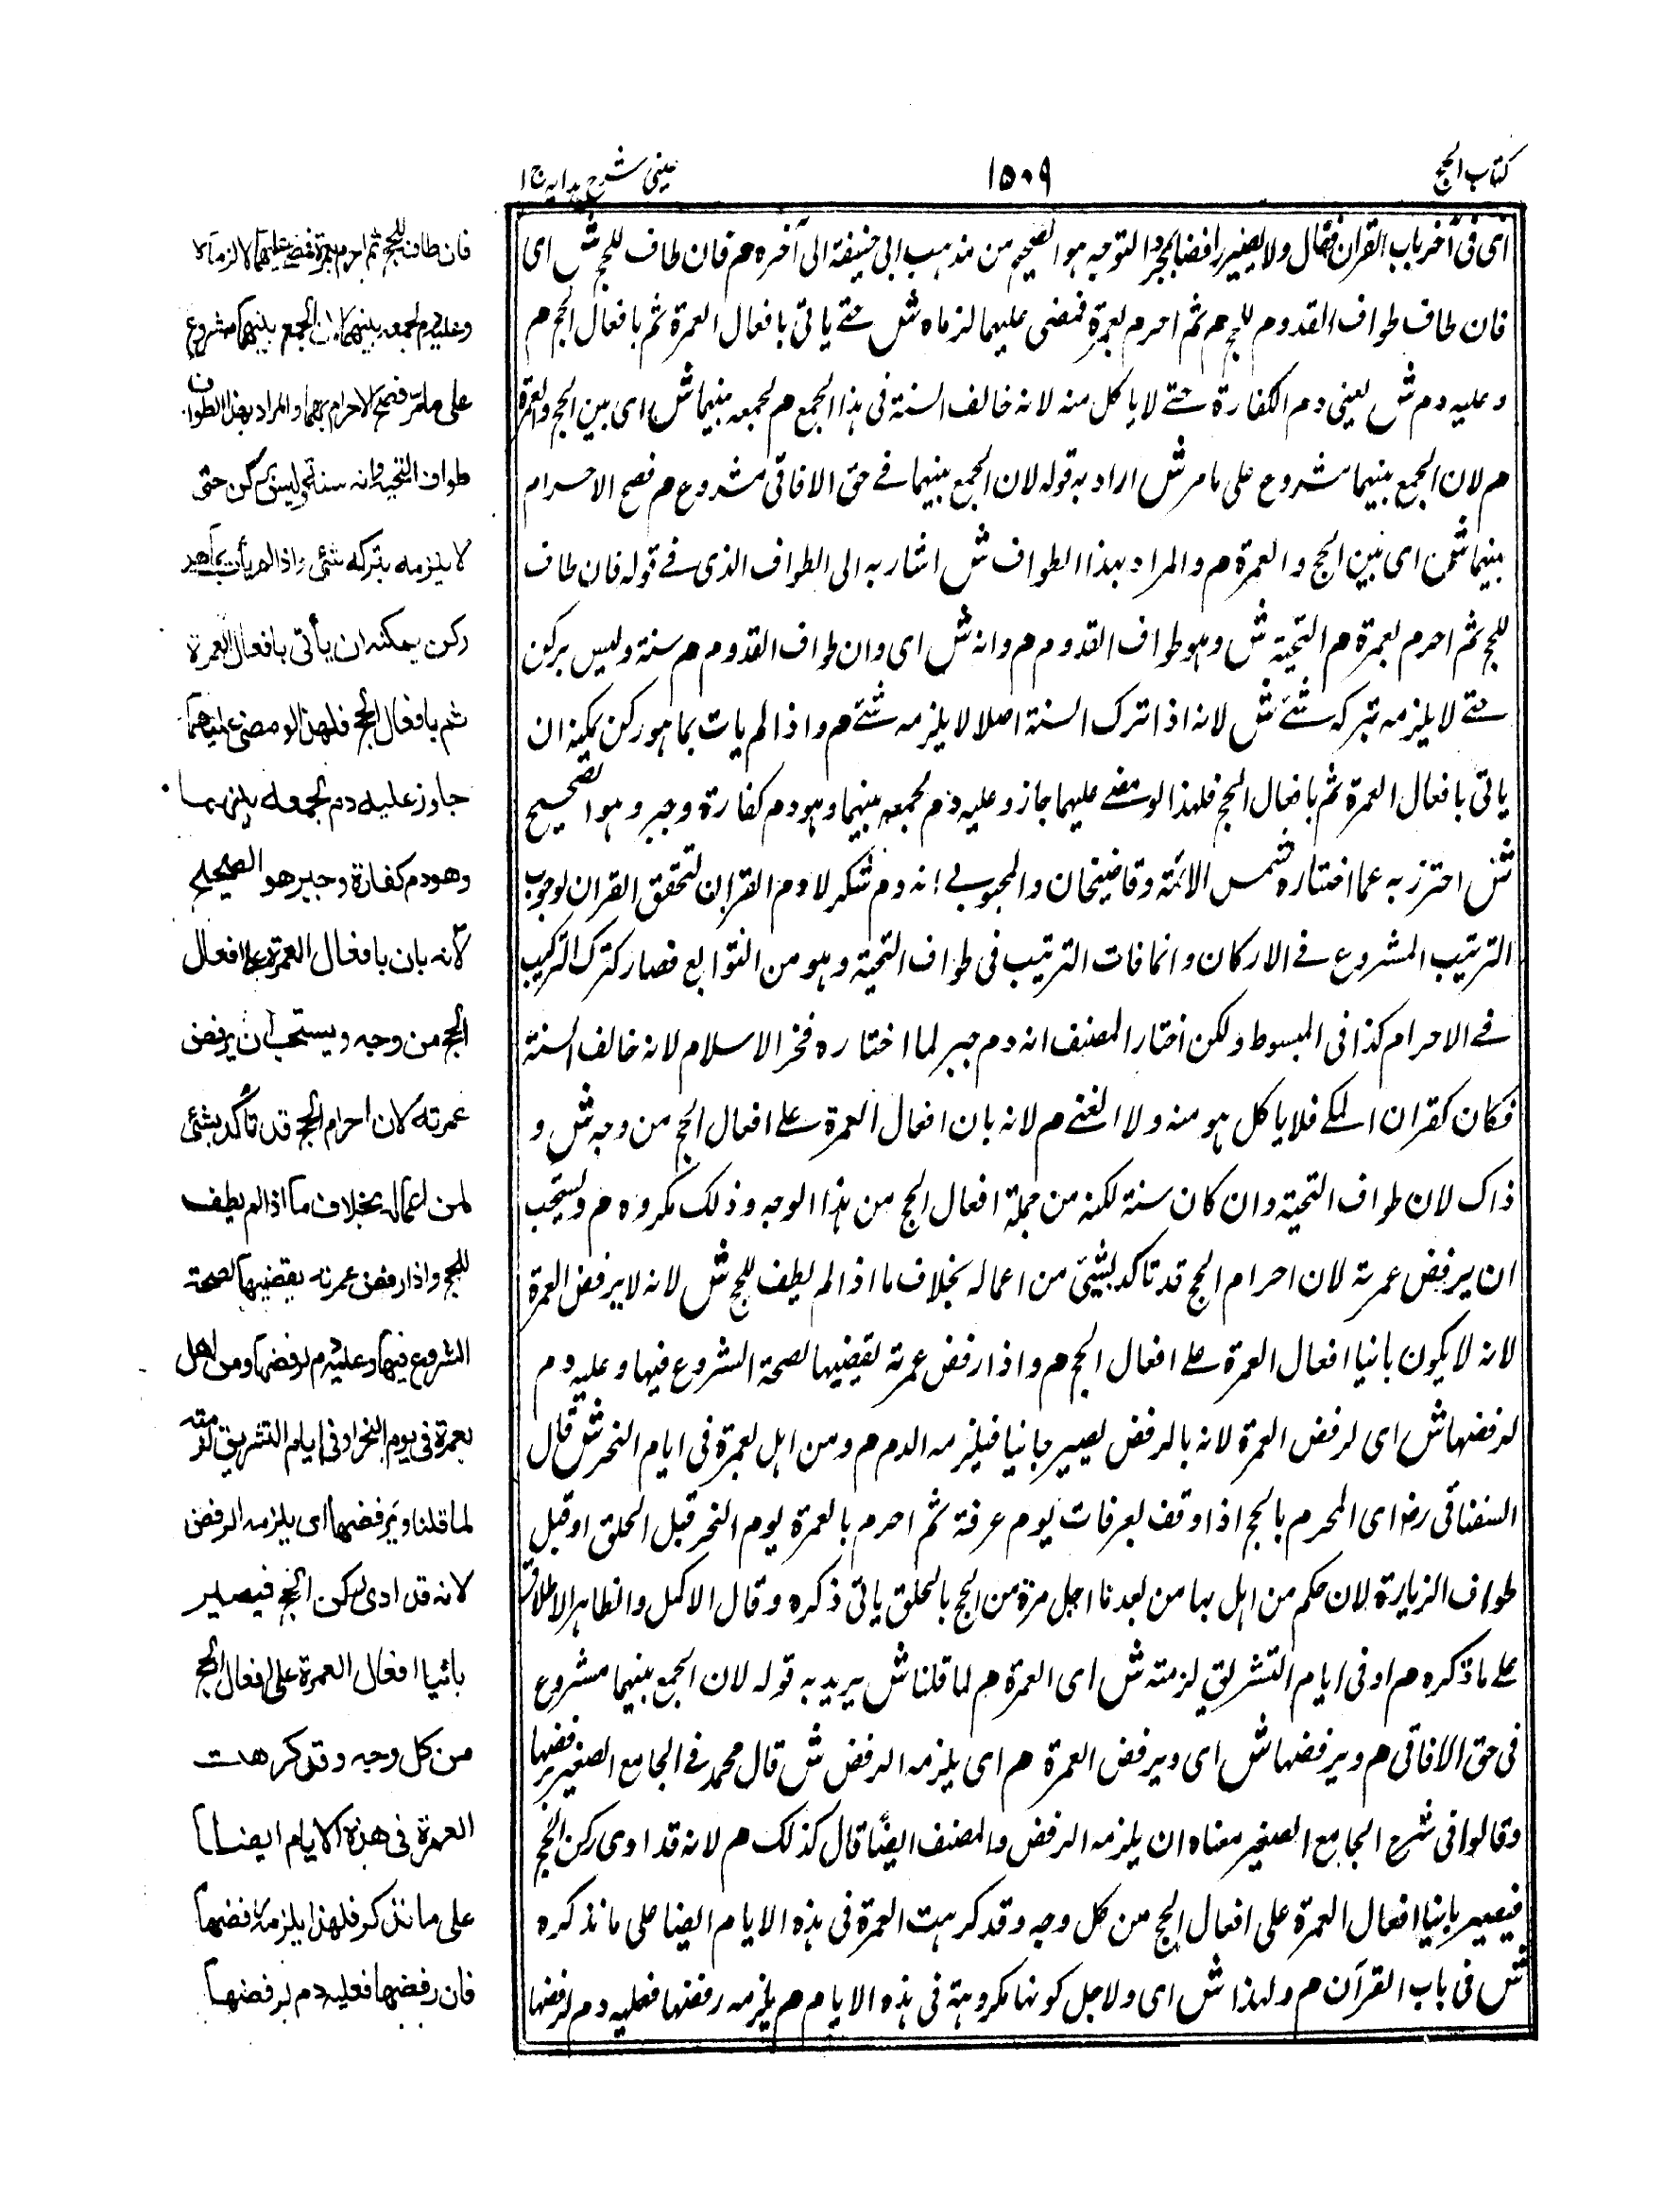 كتاب الحج
١٥٠٩
عينى شرح هدايه ج ١
اى فى آخر باب القران فقال ولا يصير رافضا بمجرد التوجه هو الصحيح من مذهب ابى حنيفة الى آخره م فان طاف للحج ش اى
فان طاف طواف القدوم للحج م ثم احرم بعمرة فمضى عليهما لزماه ش حتے ياتى بافعال العمرة ثم بافعال الحج م
وعليه دم ش يعنى دم الكفارة حتے لا ياكل منه لانه خالف السنة فى هذا الجمع م لجمعه بينهما ش اى بين الحج والعمرة
م لان الجمع بينهما مشروع على ما مر ش اراد به قوله لان الجمع بينهما فے حق الافاقى مشروع م فصح الاحرام
بينهما ش اى بين الحج والعمرة م والمراد بهذا الطواف ش اشار به الى الطواف الذى فے قوله فان طاف
للحج ثم احرم بعمرة م التحية ش وهو طواف القدوم م وانه ش اى وان طواف القدوم م سنة وليس بركن
حتے لا يلزمه بتركه شئے ش لانه اذا ترك السنة اصلا لا يلزمه شئے م واذا لم يات بما هو ركن يمكنه ان
ياتى بافعال العمرة ثم بافعال الحج فلهذا لو مضے عليهما جاز وعليه دم لجمعه بينهما وهو دم كفارة وجبر وهو الصحيح
ش احترز به عما اختاره شمس الائمة وقاضيخان والمحبوبے انه دم شكر لا دم القران لتحقق القران لوجوب
الترتيب المشروع فے الاركان وانما فات الترتيب فى طواف التحية وهو من التوابع فصار كترك الترتيب
فے الاحرام كذا فى المبسوط ولكن اختار المصنف انه دم جبر لما اختاره فخر الاسلام لانه خالف السنة
فكان كقران المكے فلا ياكل هو منه ولا الغنے م لانه بان افعال العمرة علے افعال الحج من وجه ش و
ذاك لان طواف التحية وان كان سنة لكنه من جملة افعال الحج من هذا الوجه وذلك مكروه م ويستحب
ان يرفض عمرته لان احرام الحج قد تاكد بشيئ من اعماله بخلاف ما اذا لم يطف للحج ش لانه لا يرفض العمرة
لانه لا يكون بانيا افعال العمرة علے افعال الحج م واذا رفض عمرته يقضيها لصحة الشروع فيها وعليه دم
لرفضها ش اى لرفض العمرة لانه بالرفض يصير جانيا فيلزمه الدم م ومن اهل بعمرة فى ايام النحر ش قال
السغناقى رض اى المحرم بالحج اذا وقف بعرفات يوم عرفة ثم احرم بالعمرة يوم النحر قبل الحلق او قبل
طواف الزيارة لان حكم من اهل بها من بعد ما حل مرة من الحج بالحلق ياتى ذكره وقال الاكمل والظاهر الاطلاق
علے ما ذكره م او فى ايام التشريق لزمته ش اى العمرة م لما قلنا ش يريد به قوله لان الجمع بينهما مشروع
فى حق الافاقى م ويرفضها ش اى ويرفض العمرة م اى يلزمه الرفض ش قال محمد فے الجامع الصغير يرفضها
وقالوا فى شرح الجامع الصغير معناه ان يلزمه الرفض والمصنف ايضًا قال كذلك م لانه قد ادى ركن الحج
فيصير بانيا افعال العمرة على افعال الحج من كل وجه وقد كرهت العمرة فى هذه الايام ايضا على ما نذكره
ش فى باب القرآن م ولهذا ش اى ولاجل كونها مكروهة فى هذه الايام م يلزمه رفضها فعليه دم لرفضها
فان طاف للحج ثم احرم بعمرة فمضى عليهما لزماه
وعليه دم لجمعه بينهما لان الجمع بينهما مشروع
على ما مر فصح الاحرام بهما والمراد بهذا الطواف
طواف التحية وانه سنة وليس بركن حتى
لا يلزمه بتركه شئى واذا لم يأت بما هو
ركن يمكنه ان يأتى بافعال العمرة
ثم بافعال الحج فلهذا لو مضى عليهما
جاز وعليه دم لجمعه بينهما
وهو دم كفارة وجبر هو الصحيح
لأنه بان بافعال العمرة على افعال
الحج من وجه ويستحب ان يرفض
عمرته لان احرام الحج قد تأكد بشئى
من اعماله بخلاف ما اذا لم يطف
للحج واذا رفض عمرته يقضيها لصحة
الشروع فيها وعليه دم لرفضها ومن اهل
بعمرة فى يوم النحر او فى ايام التشريق لزمته
لما قلنا ويرفضها اى يلزمه الرفض
لانه قد ادى ركن الحج فيصير
بانيا افعال العمرة على افعال الحج
من كل وجه وقد كرهت
العمرة فى هذه الايام ايضا
على ما نذكر فلهذا يلزمه رفضها
فان رفضها فعليه دم لرفضها